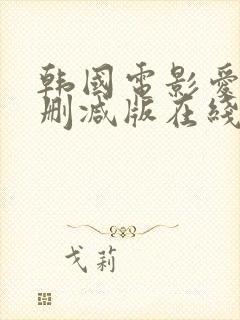 韩国電影爱
删减版在綫
戈莉